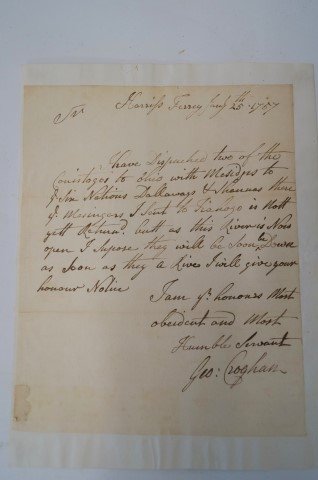 Harriss Ferrey July 25th 1757
Sir
I have Dispatched two of the
Conistogos to Ohio with Mesiges to
ye Six Nations Dallaways & Shaunas there
ye Mesingers I Sent to is Nott
yett Returnd. butt as this River is Now
open I Supose they will be Soon Down
as Soon as they a Rive I will give your
honour Notice
I am yr. honours Most
obeident and Most
Humble Servant
Geo: Croghan